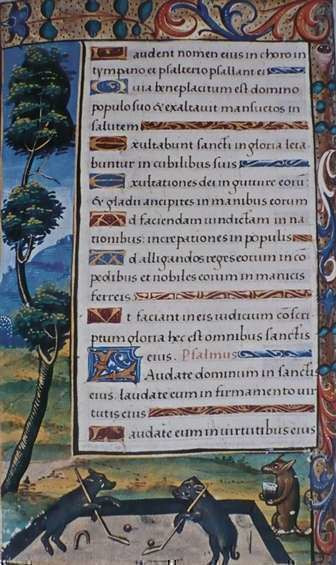 Laudent nomen eius in choro in
tympano et psalterio psallant ei
Quia beneplacitum est domino
populo suo & exaltauit mansuetos in
salutem
Exultabunt sancti in gloria leta
buntur in cubilibus suis
Exultationes dei in gutture eorū
& gladii ancipites in manibus eorum
Ad faciendam uindictam in na
tionibus: increpationes in populis
Ad alligandos reges eorum in co͂
pedibus et nobiles eorum in manicis
ferreis
Vt faciant in eis iudicium co͂scri
ptum gloria hec est omnibus sanctis
eius. Psalmus
LAudate dominum in sanctis
eius. laudate eum in firmamento uir
tutis eius
Laudate eum in uirtutibus eius